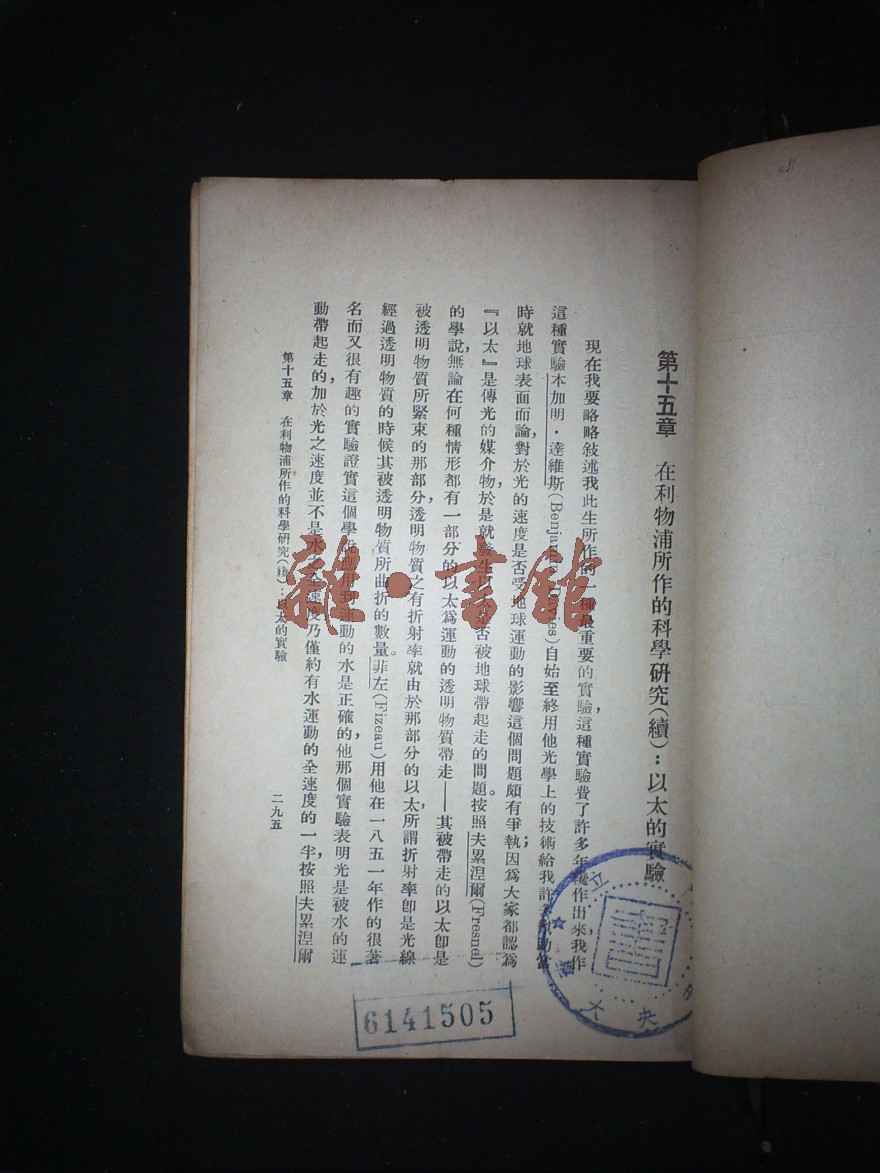 第十五章　在利物浦所作的科學硏究（續）：以太的實驗
現在我要略略敍述我此生所作的一種最重要的實驗，這種實驗費了許多年纔作出來，我作
這種實驗，本加明・達維斯(Benjamin Davies)自始至終用他光學上的技術給我許多幫助。當
時就地球表面而論，對於光的速度是否受地球運動的影響這個問題頗有爭執；因爲大家都認爲
『以太』是傳光的媒介物，於是就發生以太是否被地球帶起走的問題。按照夫累涅爾(Fresnel)
的學說，無論在何種情形都有一部分的以太爲運動的透明物質帶走——其被帶走的以太卽是
被透明物質所緊束的那部分，透明物質之有折射率就由於那部分的以太，所謂折射率卽是光線
經過透明物質的時候其被透明物質所曲折的數量。菲左(Fizeau)用他在一八五一年作的很著
名而又很有趣的實驗證實這個學說應用到運動的水是正確的，他那個實驗表明光是被水的運
動帶起走的，加於光之速度並不是水之全速度，乃僅約有水運動的全速度的一半，按照夫累涅爾
第十五章　在利物浦所作的科學硏究（續）：以太的實驗
二九五
6141505
立
央
雜・書館